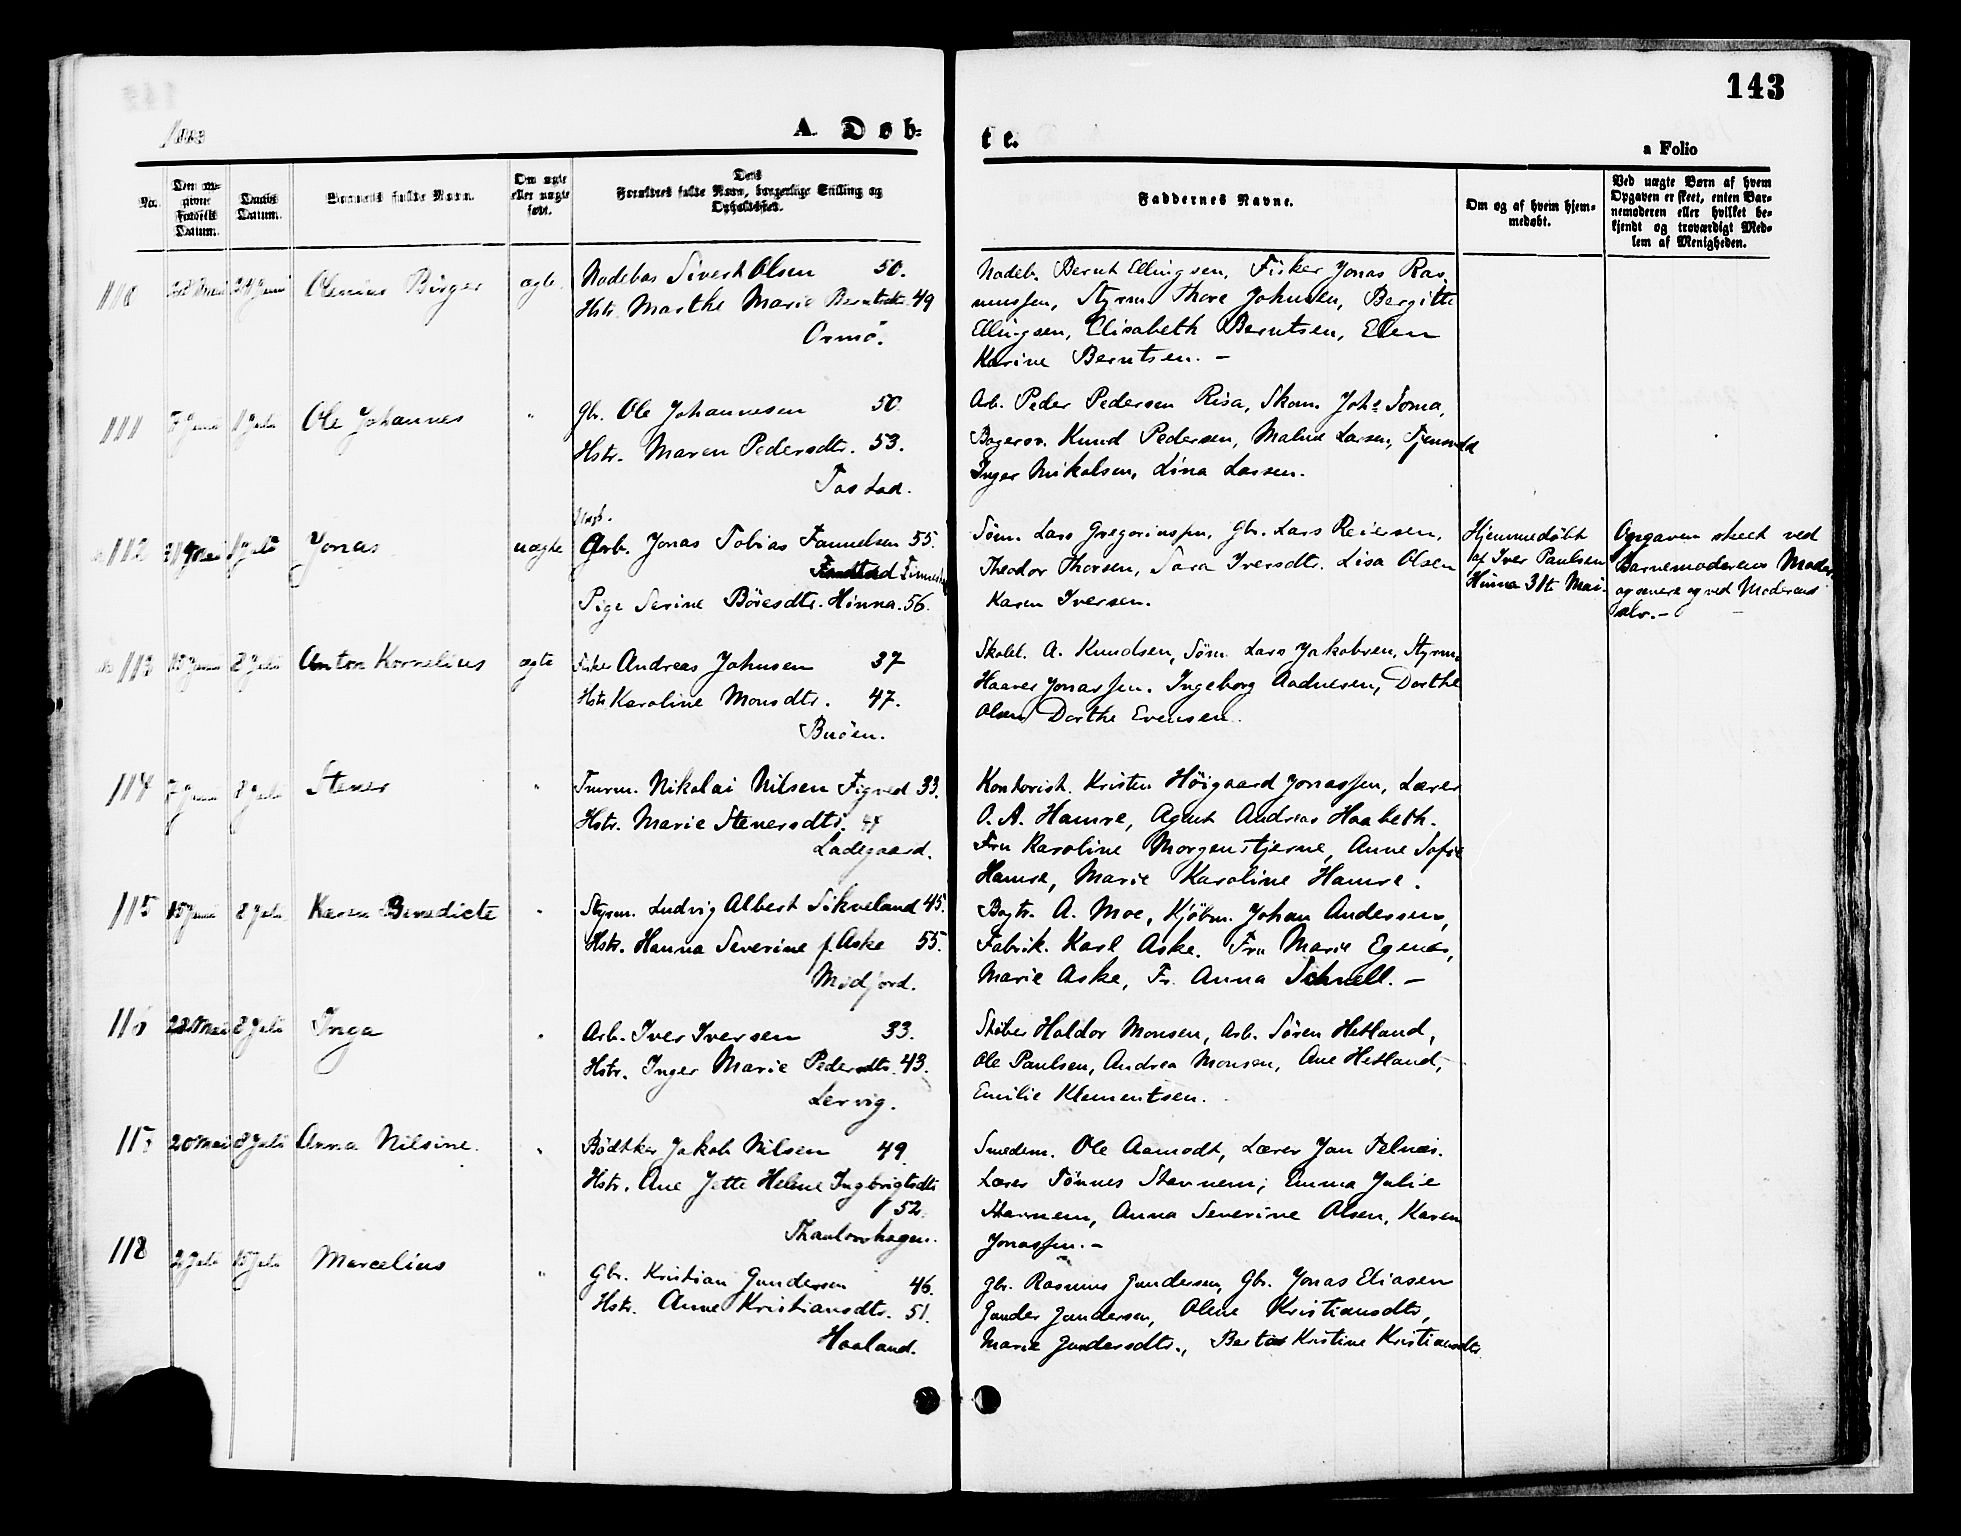 143
1883
A. Døb-
te.
a Folio
No.
Den angivne Fødsels Datum.
Daabs Datum.
Barnets fulde Navn.
Om ægte eller uægte født.
Dets Forældres fulde Navn, borgerlige Stilling og Opholdssted.
Faddernes Navne.
Om og af hvem hjemmedøbt.
Ved uægte Børn af hvem Opgaven er skeet, enten Barnemoderen eller hvilket bekjendt og troværdigt Medlem af Menigheden.
110 Mai 24 Juni Olenius Birger ægte
Nodebas Sivert Olsen 50.
Hstr. Marthe Marie Berntsdtr. 49
Ormø.
Nodeb. Bernt Ellingsen, Fisker Jonas Ras-
mussen, Styrm. Thore Johnsen, Bergitte
Ellingsen, Elisabeth Berntsen, Elen
Karine Berntsen. –
111 7 Juni 1 Juli Ole Johannes "
Gbr. Ole Johannesen 50.
Hstr. Maren Pedersdtr. 53.
Tastad.
Arb. Peder Pedersen Risa, Skom. Johs Soma,
Bagersv. Knud Pedersen, Malene Larsen,
Inger Nikolsen, Lina Larsen.
112 Mai 1 Juli Jonas uægte
Ungk.
Arb. Jonas Tobias 55.
Pige Serine Børesdtr. Hinna. 56.
Søm. Lars Gregoriussen, Gbr. Lars Reiersen,
Theodor Thorsen, Sara Iversdtr. Lisa Olsen
Karen Iversen.
Hjemmedøbt
af Iver Paulsen
Hinna 31te Mai.
Opgaven skeet ved
Barnemoderens Moder
og senere og ved Moderen
selv. –
113 15 Juni 8 Juli Anton Kornelius ægte
Fisker Andreas Johnsen 37
Hstr Karoline Monsdtr. 47.
Buøen.
Skolel. A. Knudsen, Søm. Lars Jakobsen, Styrm.
Haaver Jonassen. Ingeborg Aadnesen, Dorthe
Olsen Dorthe Evensen.
114 7 Juni 8 Juli Stener "
Tmrm. Nikolai Nilsen Figved 33.
Hstr. Marie Stenersdtr. 47
Ladegaard.
Kontorist. Kristen Høigaard Jonassen, Lærer
O. A. Hamre, Agent Andreas Haabeth.
Fru Karoline Morgenstjerne, Anne Sofie
Hamre, Marie Karoline Hamre.
115 15 Juni 8 Juli Karen Benedicte "
Styrm. Ludvig Albert Sikveland 45.
Hstr. Hanna Severine f. Aske 55.
Midjord.
Bogtr. A. Moe, Kjøbm. Johan Andersen,
Fabrik. Karl Aske. Fru Marie Egenæs,
Marie Aske, Fr. Anna Schnell. –
116 Mai 8 Juli Inga "
Arb. Iver Iversen 33.
Hstr. Inger Marie Pedersdtr. 43.
Lervig.
Støber Haldor Monsen, Arb. Søren Hetland,
Ole Paulsen, Andrea Monsen, Ane Hetland,
Emilie Klementsen.
117 20 Mai 8 Juli Anna Nilsine. "
Bødtker Jakob Nilsen 49.
Hstr. Ane Jette Helene Ingbrigtsdtr.
52.
Thaulowhagen.
Smedem. Ole Aamodt, Lærer Jan Telnæs.
Lærer Tønnes Stavnem, Emma Julie
Stavnem, Anna Severine Olsen, Karen
Jonassen. –
118 2 Juli 15 Juli Marcelius "
Gbr. Kristian Gundersen 46.
Hstr. Anne Kristiansdtr. 51.
Haaland.
Gbr. Rasmus Gundersen, Gbr. Jonas Eliasen
Gunder Gundersen, Olene Kristiansdtr,
Marie Gundersdtr., Berta Kristine Kristiansdtr.